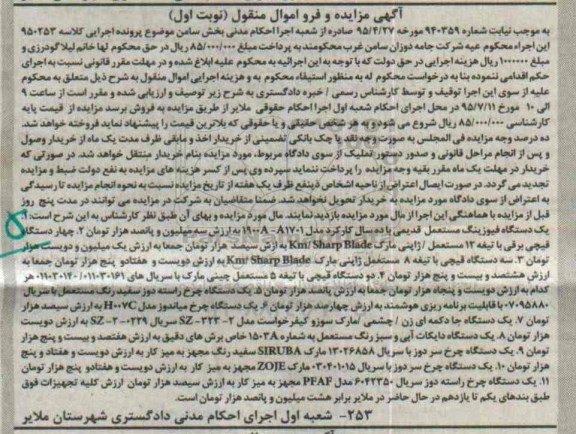 آگهی مزایده و فرو اموال منقول (نوبت اول)
به موجب نیابت شماره ۹۴۰۳۵۹ مورخه ۹۵/۴/۲۷ صادره از شعبه اجرا احکام مدنی بخش سامن موضوع پرونده اجرایی کلاسه ۹۵۰۲۵۳
این اجراء محکوم علیه شرکت جامه دوزان سامن غرب محکومند به پرداخت مبلغ ۸۵/۰۰۰/۰۰۰ ریال در حق محکوم لها خانم لیلا گودرزی و
مبلغ ۱۰۰۰۰۰۰ ریال هزینه اجرایی در حق دولت که با توجه به این اجرائیه به محکوم علیه ابلاغ شده و در مهلت مقرر قانونی نسبت به اجرای
حکم اقدامی ننموده بنا به درخواست محکوم له به منظور استیفاء محکوم به و هزینه اجرایی اموال منقول به شرح ذیل متعلق به محکوم
علیه از سوی این اجرا توقیف و توسط کارشناس رسمی / خبره دادگستری به شرح زیر توصیف و ارزیابی شده و مقرر است از ساعت ۹
الی ۱۰ مورخ ۹۵/۷/۱۱ در محل اجرای احکام شعبه اول اجرا احکام حقوقی ملایر از طریق مزایده به فروش برسد مزایده از قیمت پایه
کارشناسی ۸۵/۰۰۰/۰۰۰ ریال شروع می شود و به هر شخص حقیقی و یا حقوقی که بالاترین قیمت را پیشنهاد نماید فروخته خواهد شد.
ده درصد وجه مزایده فی المجلس به صورت وجه نقد یا چک بانکی تضمینی از خریدار اخذ و مابقی ظرف مدت یک ماه از خریدار وصول
و پس از انجام مراحل قانونی و صدور دستور تملیک از سوی دادگاه مربوط، مورد مزایده بنام خریدار منتقل خواهد شد. در صورتی که
خریدار در مهلت یک ماه مقرر بقیه وجه مزایده را پرداخت ننماید سپرده وی پس از کسر هزینه های مزایده به نفع دولت ضبط و مزایده
تجدید می گردد. در صورت ایصال اعتراض از ناحیه اشخاص ذینفع ظرف یک هفته از تاریخ مزایده نسبت به نحوه انجام مزایده تا رسیدگی
به اعتراض از سوی دادگاه مورد مزایده به خریدار تحویل نخواهد شد. ضمنا متقاضیان به شرکت در مزایده می توانند در مدت پنج روز
قبل از مزایده با هماهنگی این اجرا از مال مورد مزایده بازدید نمایند. مال مورد مزایده و بهای آن طبق نظر کارشناس به این شرح است: ۱.
یک دستگاه فیوزینگ مستعمل قدیمی با ده سال کارکرد مدل ۱۹۰۰A-A۱۷۰۱ به ارزش سه میلیون و پانصد هزار تومان ۲. چهار دستگاه
قیچی برقی با تیغه ۱۲ مستعمل /ژاپنی مارک Km/ Sharp Blade به ارزش سیصد هزار تومان جمعا به ارزش یک میلیون و دویست هزار
تومان ۳. سه دستگاه قیچی با تیغه ۸ مستعمل ژاپنی مارک Km/ Sharp Blade به ارزش دویست و هفتادو پنج هزار تومان جمعا به
ارزش هشتصد و بیست و پنج هزار تومان ۴. دو دستگاه قیچی با تیغه ۵ مستعمل چینی مارک با سریال های ۰۱۱۰۳۰۱۶۱/ ۰۱۱۰۳۰۱۲۰ هر
کدام به ارزش دویست و پنجاه هزار تومان جمعا به ارزش پانصد هزار تومان ۵. یک دستگاه چرخ راسته دوز سفید رنگ مستعمل با سریال
۰۷۰۹۵۸۸۰ با قابلیت برنامه ریزی هوشمند به ارزش چهارصد هزار تومان ۶. یک دستگاه چرخ میاندوز مدل H۰۰۷C به ارزش سیصد هزار
تومان ۷. یک دستگاه جا دکمه ای زن / چشمی /مارک سوزو کیفرخواست مدل ۲- SZ-۳۲۳ سریال ۰۲۲۹-SZ-۲ به ارزش دویست
هزار تومان ۸. یک دستگاه دایکات آبی و سبز رنگ مستعمل به شماره ۱۵۰۳A خاص برش های دقیق به ارزش هفتصد و بیست و پنج هزار
تومان ۹. یک دستگاه چرخ سر دوز با سریال ۱۳۰۲۶۸۵۸ مارک SIRUBA سفید رنگ مجهز به میز کار به ارزش دویست و هفتاد و پنج
هزار تومان ۱۰. یک دستگاه چرخ سر دوز با سریال ۰۳۰۴۰۱۰۱۵ مارک ZOJE مجهز به میز کار به ارزش دویست و هفتادو پنج هزار تومان
۱۱. یک دستگاه چرخ راسته دوز سریال ۶۰۴۲۳۵۰ مدل PFAF مجهز به میز کار به ارزش سیصد هزار تومان ارزش کلیه تجهیزات فوق
طبق بندهای یکم تا یازدهم در حال حاضر در ملایر برابر هشت میلیون و پانصد هزار تومان است.
۲۵۳- شعبه اول اجرای احکام مدنی دادگستری شهرستان ملایر